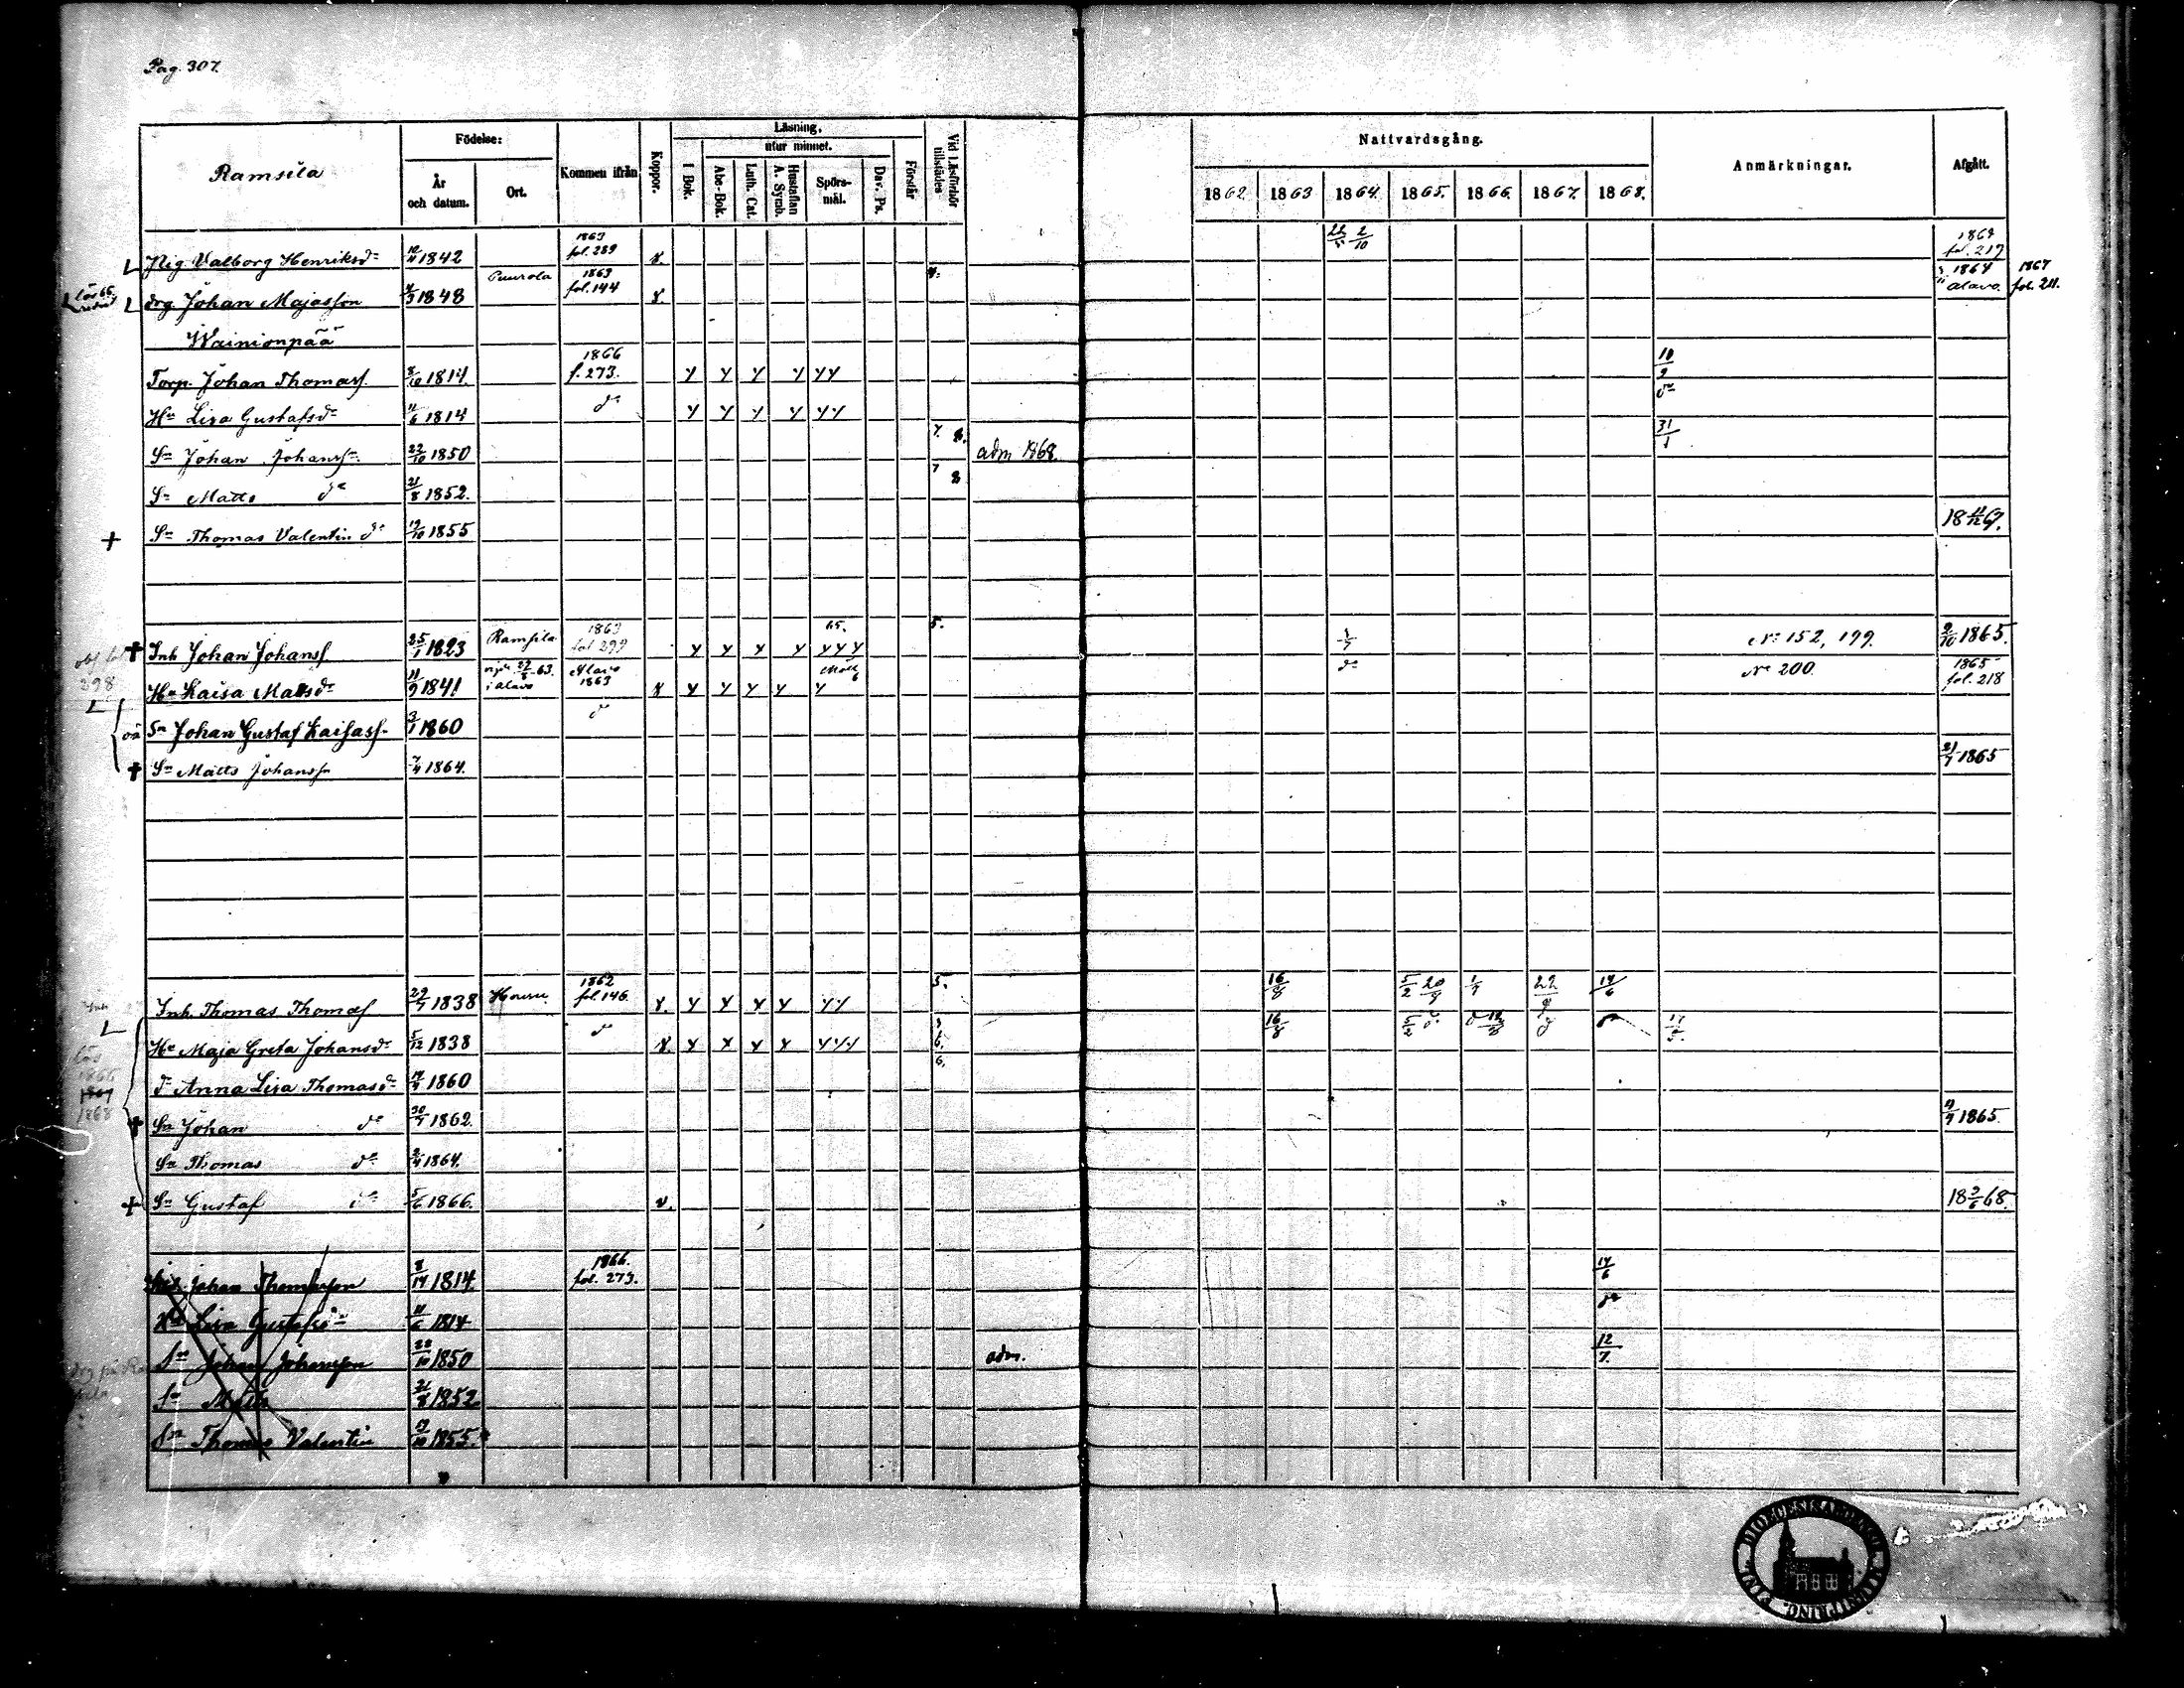 Pag. 307.
Ramsila
Födelse:
År och datum.
Ort.
Kommen ifrån
Koppor.
Läsning,
utur minnet.
I Bok.
Abs-Bok.
Luth. Cat.
Hustaflan A. Symb.
Spörs-mål.
Dav. Ps.
Förstår
Vid Läsförhör tillstädes
Nattvardsgång.
1862 1863 1864. 1865. 1866. 1867. 1868.
Anmärkningar.
Afgått.
Pig. Valborg Henriksdr 10/11 1842 1863 fol. 289 v. 2/10 1864 fol. 219
drg. Johan Majasson 4/3 1848 Puurola 1863 fol. 144 v. 1864 Alavo. 1867 fol. 211.
Wainionpää
Torp. Johan Thomass. 8/10 1814. 1866 f. 273. Y Y Y Y Y Y 18/2
Hu Lisa Gustafsdr 11/6 1814 do Y Y Y Y Y Y do
Sn Johan Johanss. 22/10 1850 7. 8. adm 1868. 31/1
Sn Matts do 21/8 1852. 7 8
+ Sn Thomas Valentin do 19/10 1855 18 11/12 67.
298
+ Inh Johan Johanss. 25/1 1823 Ramsila 1863 fol 299 Y Y Y Y Y Y Y 65. 5. 1/7 No 152, 199. 2/10 1865.
Hu Kaisa Mattsdr 11/9 1841 i Alavo 63. Alavo 1863 v Y Y Y Y Y do No 200. 1865 fol. 218
Sn Johan Gustaf Kaisass. 3/1 1860 do
+ Sn Matts Johanss. 7/4 1864. 21/7 1865
Inh. Thomas Thomass. 29/7 1838 1862 fol. 146. v. Y Y Y Y Y Y 5. 16/8 5/2 20/9 1/7 22/9 14/6
Hu Maja Greta Johansdr 5/12 1838 do v. Y Y Y Y Y Y Y 6. 16/8 5/2 do
dr Anna Lisa Thomasdr 1860 6.
+ Sn Johan do 30/7 1862. 4/7 1865.
Sn Thomas do 2/4 1864.
+ Sn Gustaf do 5/6 1866. v. 18 3/6 68.
1868
Johan Thomasson 8/14 1814. 1866. fol. 273. 14/6
Hu Lisa Gustafsdr 11/6 1814 do
Sn Johan Johansson 22/10 1850 adm. 12/7.
Sn Matts 21/8 1852
Sn Thomas Valentin 19/10 1855.